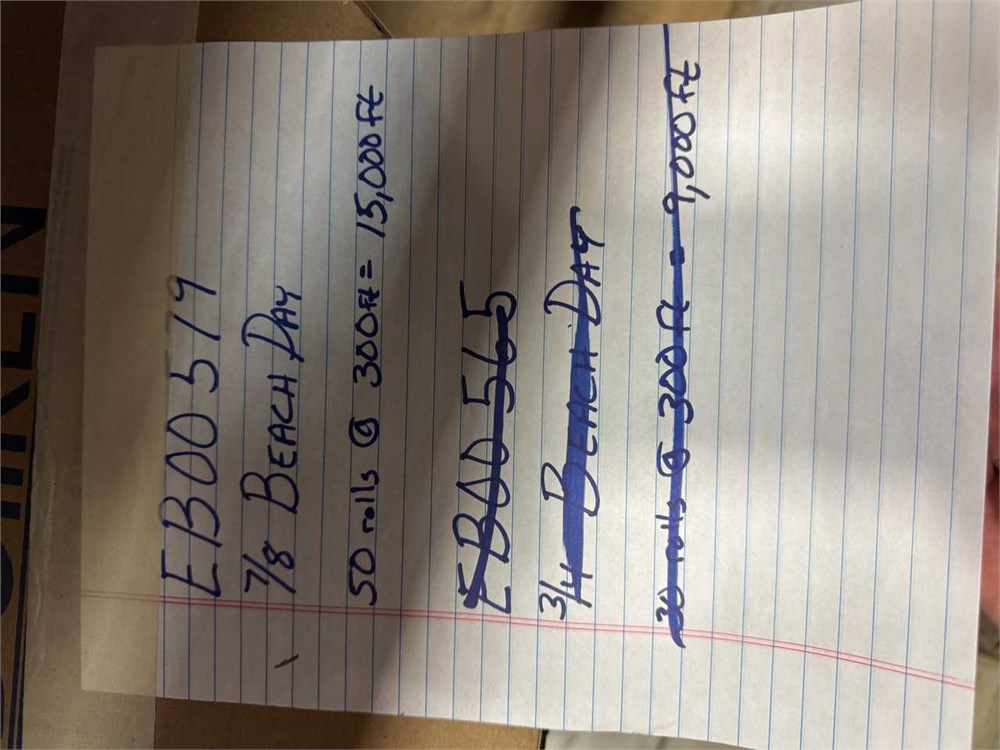 EB00519
7/8 BEACH DAY
50 rolls @ 300ft = 15,000 ft
EB00565
3/4 BEACH DAY
30 rolls @ 300 ft = 9,000 ft